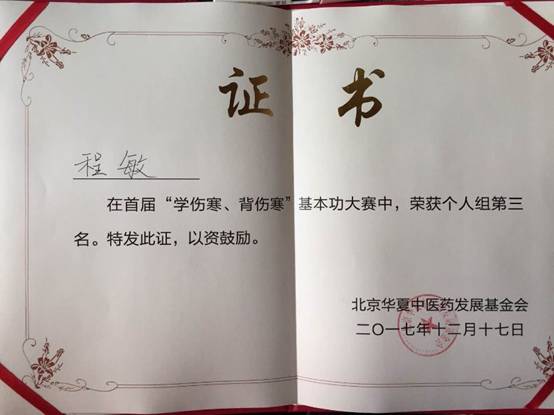 证 书
程敏
在首届“学伤寒、背伤寒”基本功大赛中，荣获个人组第三
名。特发此证，以资鼓励。
北京华夏中医药发展基金会
二〇一七年十二月十七日